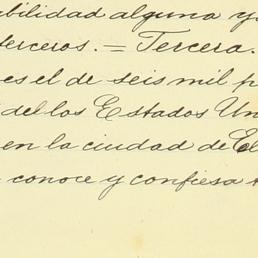 abilidad alguna y
terceros. = Tercera.
es el de seis mil p
del los Estados Un
en la ciudad de El
conoce y confiesa